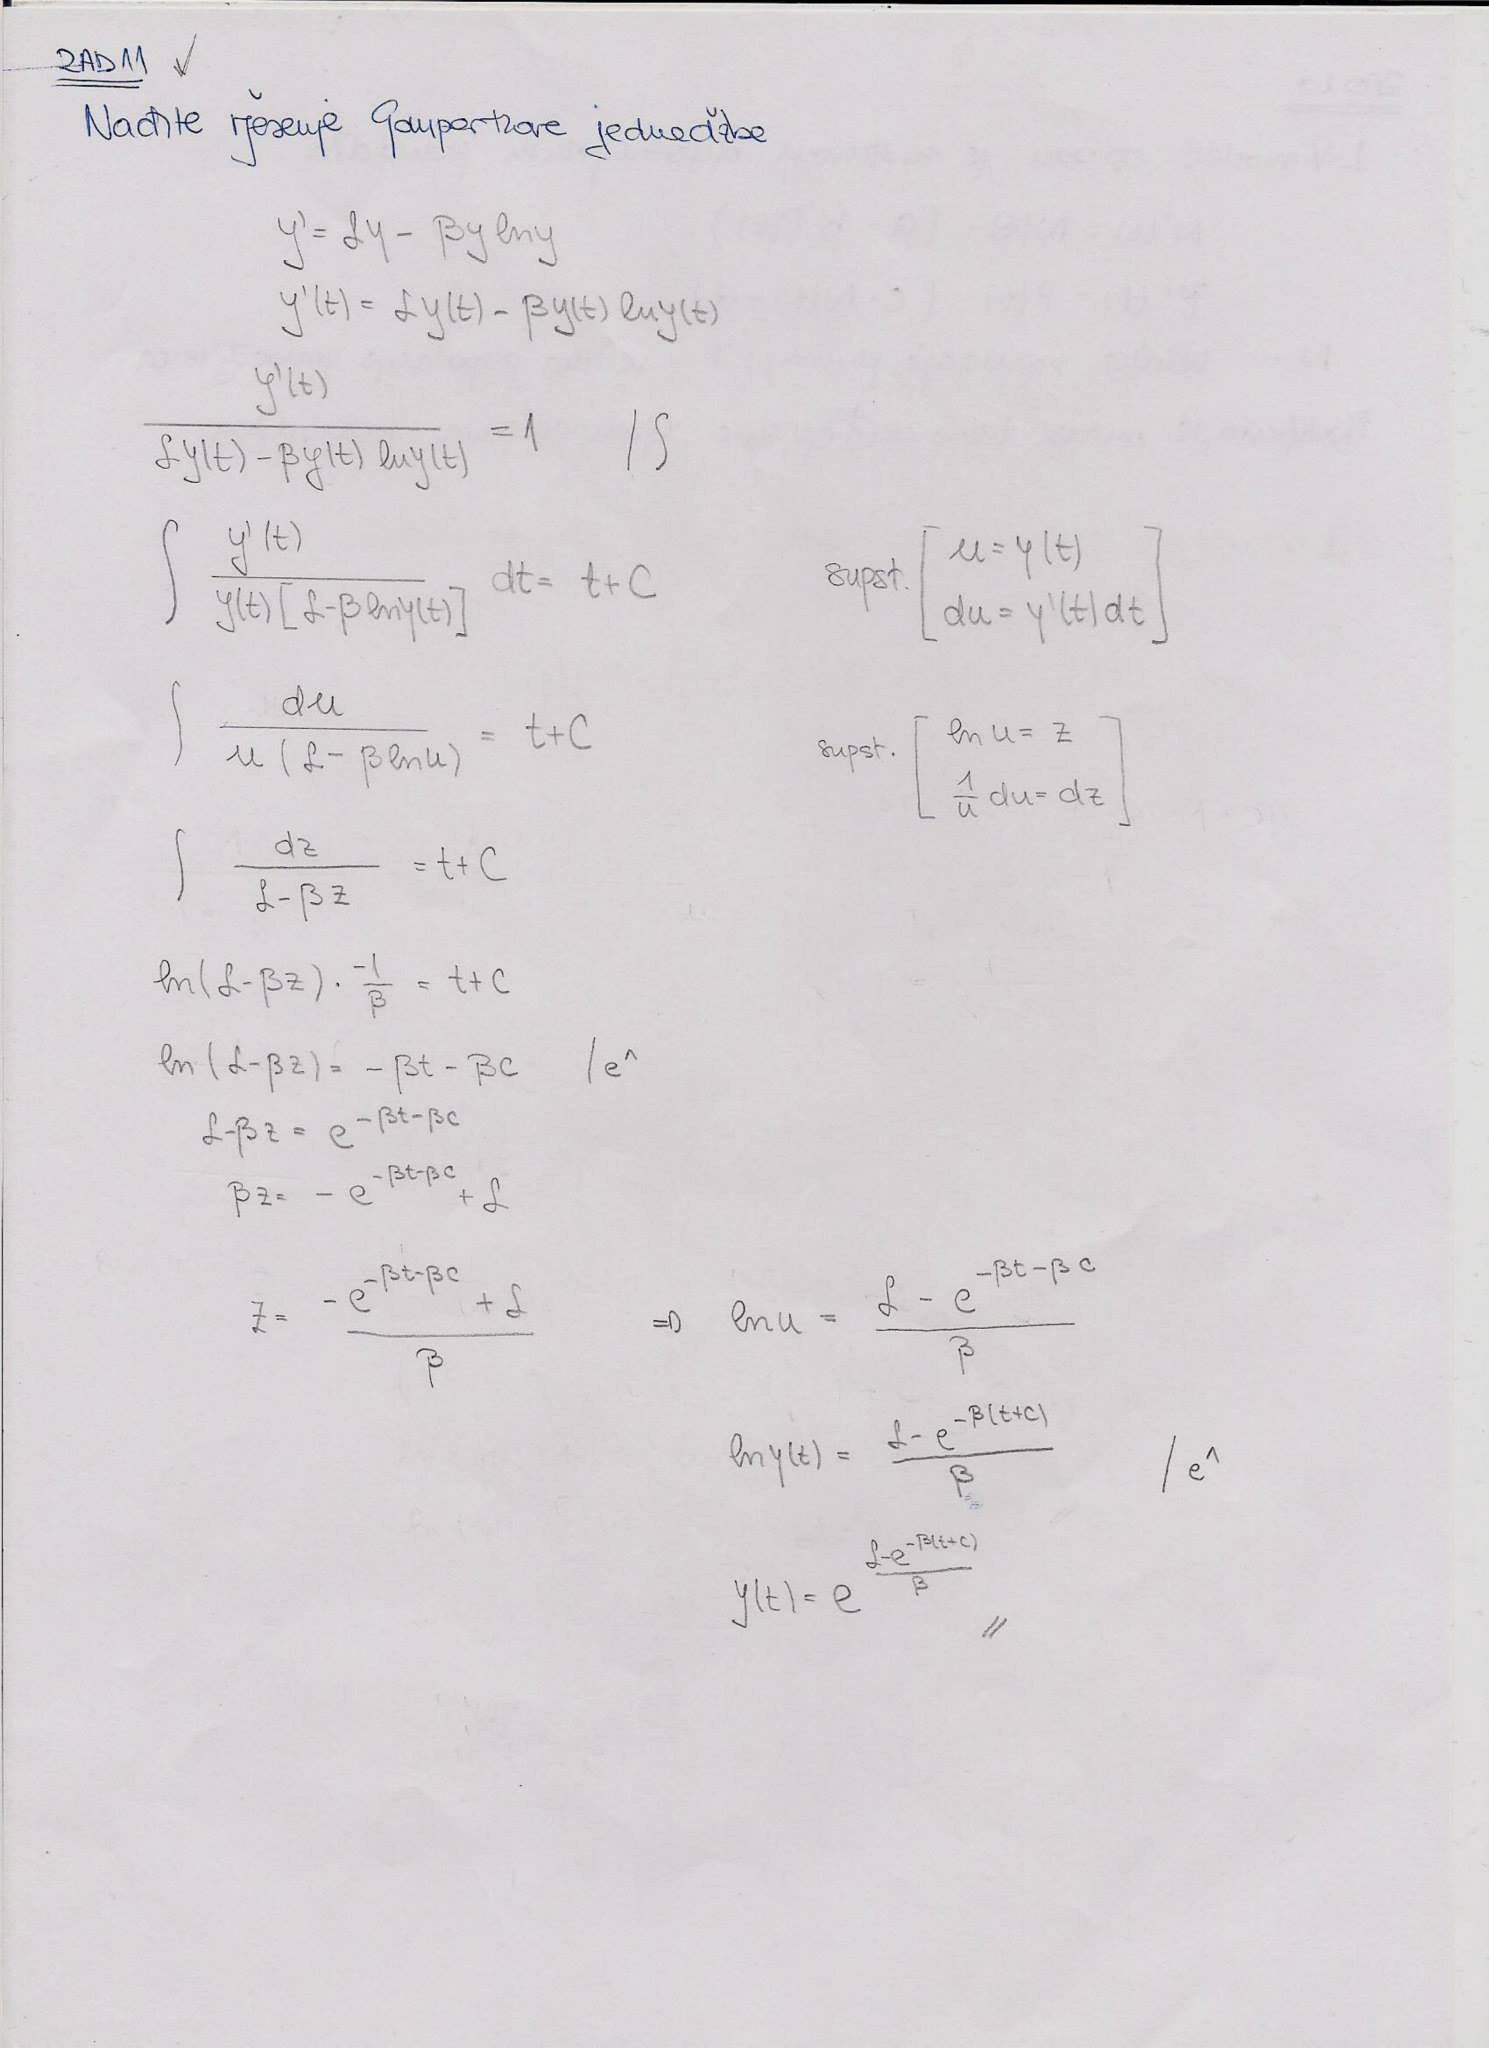 ZAD 11 ✓
Nađite rješenje Gompertzove jednadžbe
y' = αy - βy ln y
y'(t) = αy(t) - βy(t) ln y(t)
y'(t) / (αy(t) - βy(t) ln y(t)) = 1 /∫
∫ y'(t) / (y(t)[α - β ln y(t)]) dt = t + C supst. [u = y(t)
du = y'(t)dt]
∫ du / (u(α - β ln u)) = t + C supst. [ln u = z
1/u du = dz]
∫ dz / (α - βz) = t + C
ln(α - βz) · -1/β = t + C
ln(α - βz) = -βt - βC /e^
α - βz = e^(-βt-βC)
βz = -e^(-βt-βC) + α
z = (-e^(-βt-βC) + α) / β ⇒ ln u = (α - e^(-βt-βC)) / β
ln y(t) = (α - e^(-β(t+C))) / β /e^
y(t) = e^((α - e^(-β(t+C))) / β) //